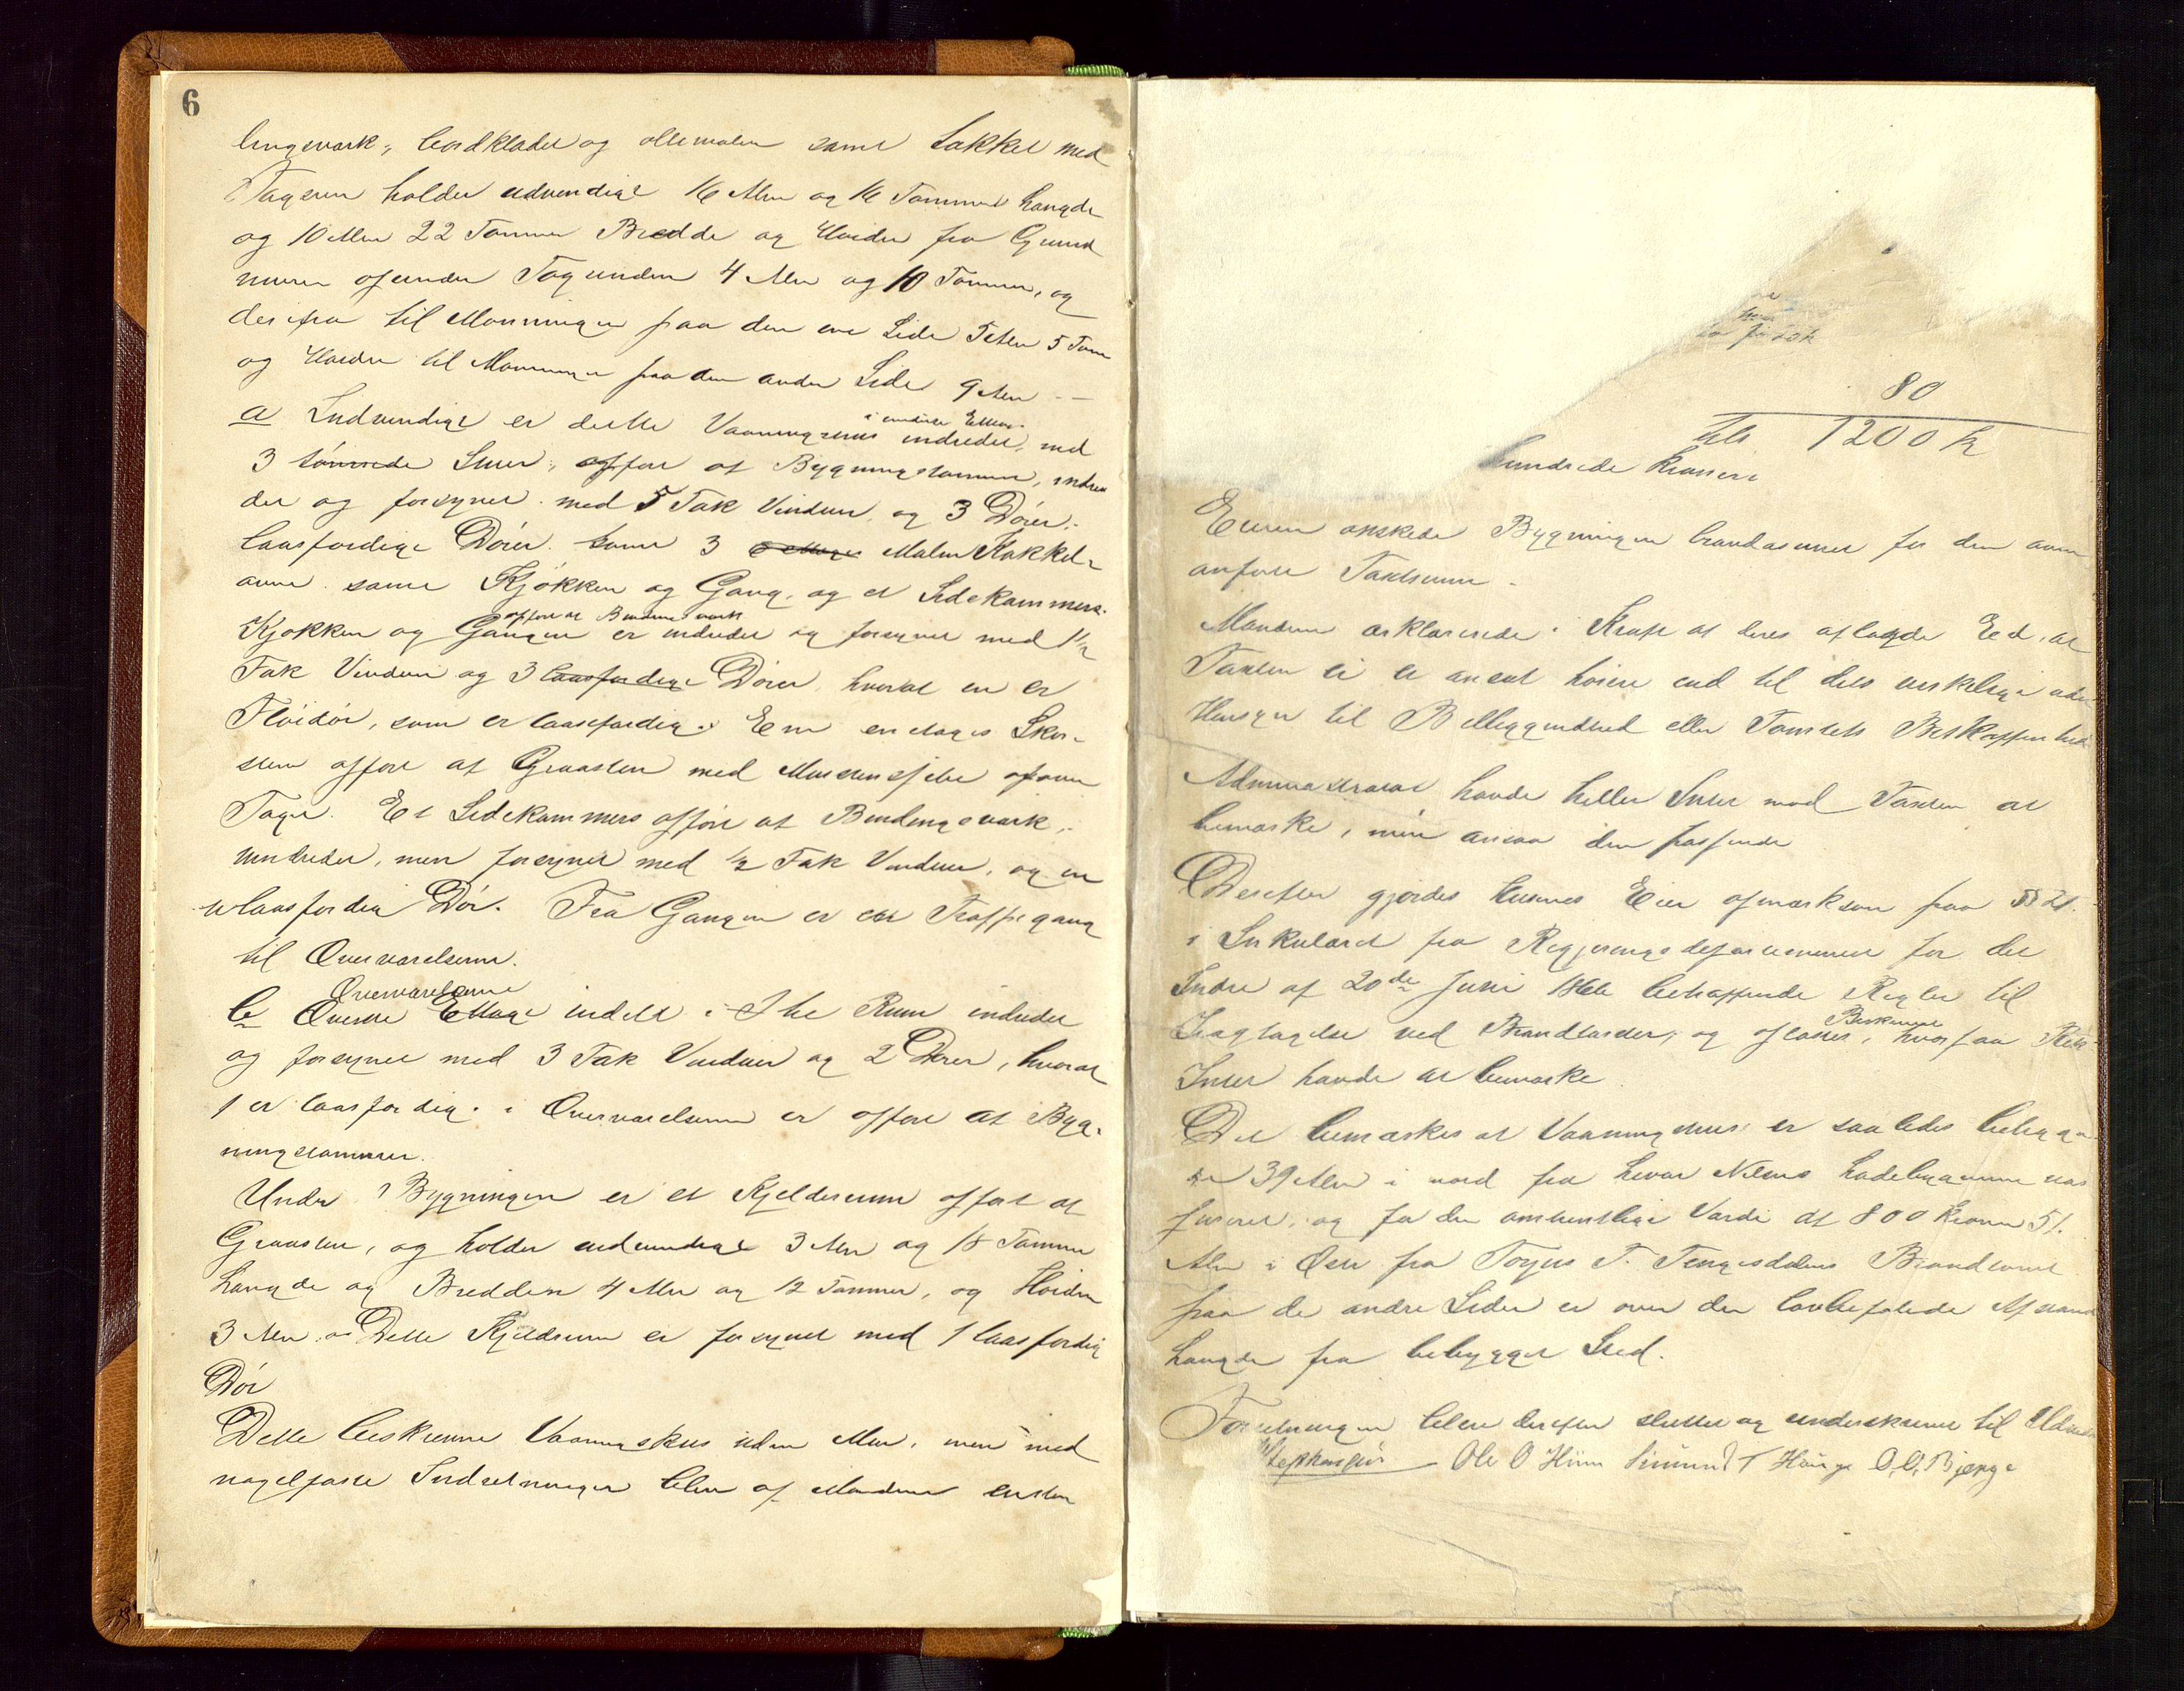 6
lingsværk, bordklædet og ollemalen samt Lakket med
Tagsten holder udvendigt 16 Alen og 16 Tommer Længde
og 10 Alen 22 Tommer Bredde og Høiden fra Grund
muren ofunder Tagunden 4 Alen og 10 Tommer, og
derifra til Mønningen paa den ene Side 5 Alen 5 Tom
og Høiden til Mønningen paa den anden Side 9 Alen
a Indvendigt er dette Vaaningshus indredet, med
i underste Ettage
3 tømrede Stuer, opført af Bygningstømmer, indre
det og forsynet med 5 Fak Vinduer og 3 Dører.
laasfærdige Dører samt 3 Malm Kakkel-
ovne samt Kjøkken og Gang, og et Sidekammers.
opført af Bindingsværk
Kjøkken og Gangen er indredet og forsynet med 1½
Fak Vinduer og 3 laasfærdige Dører, hvoraf en er
Fløidør, som er laasfærdig. En en etages Skor-
sten opført af Graasten med Mursteenspibe ofover
Taget. Et Sidekammers opført af Bindingsværk,
uindredet, men forsynet med ½ Fak Vinduer, og en
ulaasfærdig Dør. Fra Gangen er en Trappegang
til Overværelserne.
Overværelserne
b Øverste Ettage inddelt i Rum indredet
og forsynet med 3 Fak Vinduer og 2 Dører, hvoraf
1 er laasfærdig. i Overværelserne er opført af Byg-
ningstømmer.
Under Bygningen er et Kjelderrum opført af
Graasten, og holder indvendigt 3 Alen og 18 Tommer
Længde og Bredden 4 Alen og 12 Tommer, og Høiden
3 Alen. Dette Kjelderrum er forsynet med 1 laasfærdig
Dør
Dette beskrevne Vaaningshus uden Mur, men med
nagelfaste Indretninger blev af Mændene ansat
for 20 k
80
tils 1200 k
hundrede kroner
Eieren ønskede Bygningen brandassureret for den oven
anførte Taxtsum.
Mændene erklærede i Kraft af deres aflagde Eed, at
Taxten ei er ansat høiere end til dets virkelige uden
Hensyn til Beliggendhed eller Tomtets Beskaffenhed
Administrator havde heller Intet mod Taxten at
bemærke, men ansaa den passende
Derefter gjordes husets Eier opmærksom paa §§ 21.
i Sirkulæret fra Regjeringsdepartementet for det
Indre af 20de Juni 1846 betræffende Regler til
Beskrevet
Iagtagelse ved Brandtaxter, og oplæstes, hvorpaa
Intet havde at bemærke
Det bemærkes at Vaaningshuset er saaledes bebygget
39 Alen i nord fra Ivar Nilsens Ladebygning
og for den omtrentlige Værdi af 800 kroner 51.
Alen i Øst fra Torjus T. Tengesdalens Brandtomt
paa de andre Sider er over den lovbefalede Afstand
Længde fra bebygget Sted.
Forretningen blev derefter sluttet og underskrevet til
Ole O Hiim Simund T Hauge O. O. Bjerge